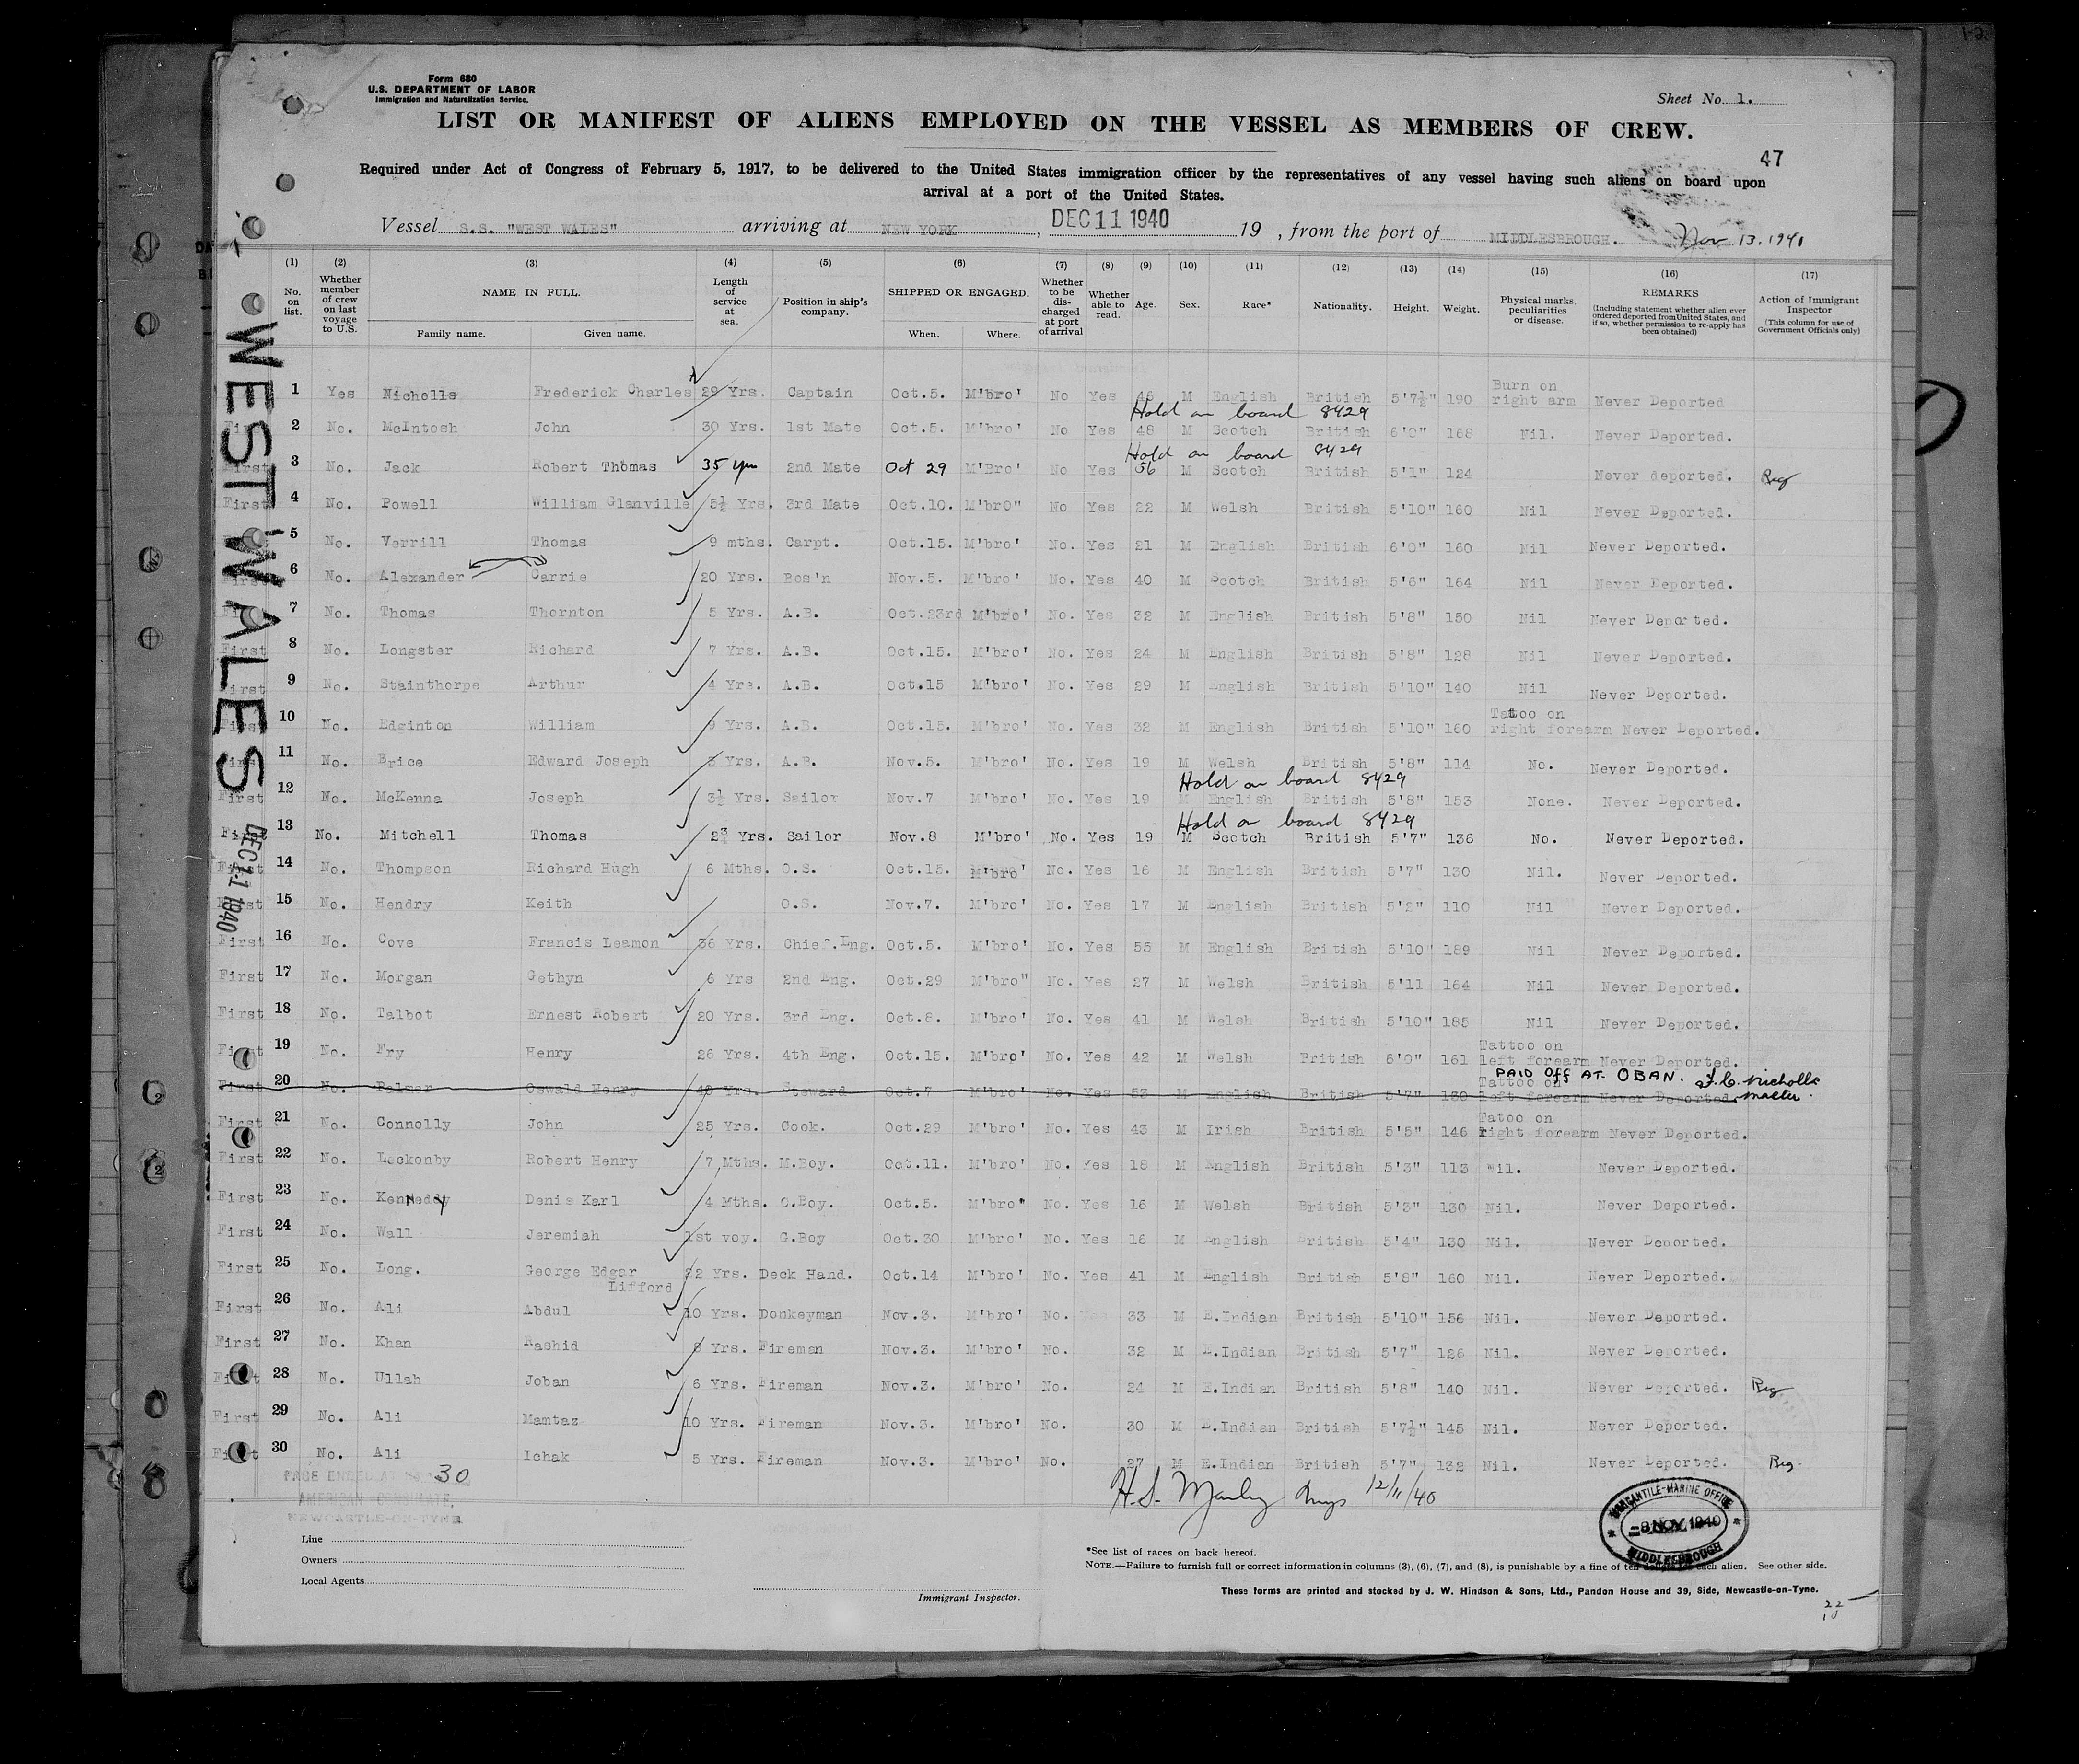 Form 680
U.S. DEPARTMENT OF LABOR
Immigration and Naturalization Service.
Sheet No. 1.
LIST OR MANIFEST OF ALIENS EMPLOYED ON THE VESSEL AS MEMBERS OF CREW.
47
Required under Act of Congress of February 5, 1917, to be delivered to the United States immigration officer by the representatives of any vessel having such aliens on board upon
arrival at a port of the United States.
Vessel S.S. "WEST WALES" arriving at NEW YORK, DEC 11 1940 19 , from the port of MIDDLESBROUGH. Nov 13. 1940
(1) (2) (3) (4) (5) (6) (7) (8) (9) (10) (11) (12) (13) (14) (15) (16) (17)
No. on list. Whether member of crew on last voyage to U.S. NAME IN FULL. Family name. Given name. Length of service at sea. Position in ship's company. SHIPPED OR ENGAGED. When. Where. Whether to be discharged at port of arrival Whether able to read. Age. Sex. Race* Nationality. Height. Weight. Physical marks, peculiarities or disease. REMARKS (Including statement whether alien ever ordered deported from United States, and if so, whether permission to re-apply has been obtained) Action of Immigrant Inspector (This column for use of Government Officials only)
WEST WALES
DEC 11 1940
1 Yes Nicholls Frederick Charles 29 Yrs. Captain Oct.5. M'bro' No Yes 46 M English British 5'7½" 190 Burn on right arm Never Deported
Hold on board 8429
2 No. McIntosh John 30 Yrs. 1st Mate Oct.5. M'bro' No Yes 48 M Scotch British 6'0" 168 Nil. Never Deported.
Hold on board 8429
First 3 No. Jack Robert Thomas 35 yrs 2nd Mate Oct 29 M'Bro' No Yes 56 M Scotch British 5'1" 124 Never deported. Reg
First 4 No. Powell William Glanville 5½ Yrs. 3rd Mate Oct.10. M'bro" No Yes 22 M Welsh British 5'10" 160 Nil Never Deported.
5 No. Verrill Thomas 9 mths. Carpt. Oct.15. M'bro' No. Yes 21 M English British 6'0" 160 Nil Never Deported.
First 6 No. Alexander Carrie 20 Yrs. Bos'n Nov.5. M'bro' No. Yes 40 M Scotch British 5'6" 164 Nil Never Deported.
7 No. Thomas Thornton 5 Yrs. A.B. Oct.23rd M'bro' No. Yes 32 M English British 5'8" 150 Nil Never Deported.
First 8 No. Longster Richard 7 Yrs. A.B. Oct.15. M'bro' No. Yes 24 M English British 5'8" 128 Nil Never Deported.
First 9 No. Stainthorpe Arthur 4 Yrs. A.B. Oct.15 M'bro' No. Yes 29 M English British 5'10" 140 Nil Never Deported.
First 10 No. Edginton William 9 Yrs. A.B. Oct.15. M'bro' No. Yes 32 M English British 5'10" 160 Tatoo on right forearm Never Deported.
First 11 No. Brice Edward Joseph Yrs. A.B. Nov.5. M'bro' No. Yes 19 M Welsh British 5'8" 114 No. Never Deported.
Hold on board 8429
First 12 No. McKenna Joseph 3½ Yrs. Sailor Nov.7 M'bro' No. Yes 19 M English British 5'8" 153 None. Never Deported.
Hold on board 8429
First 13 No. Mitchell Thomas 2¾ Yrs. Sailor Nov.8 M'bro' No. Yes 19 M Scotch British 5'7" 136 No. Never Deported.
First 14 No. Thompson Richard Hugh 6 Mths. O.S. Oct.15. M'bro' No. Yes 16 M English British 5'7" 130 Nil. Never Deported.
First 15 No. Hendry Keith O.S. Nov.7. M'bro' No. Yes 17 M English British 5'2" 110 Nil Never Deported.
First 16 No. Cove Francis Leamon 36 Yrs. Chief.Eng. Oct.5. M'bro' No. Yes 55 M English British 5'10" 189 Nil Never Deported.
First 17 No. Morgan Gethyn 6 Yrs 2nd Eng. Oct.29 M'bro" No. Yes 27 M Welsh British 5'11 164 Nil Never Deported.
First 18 No. Talbot Ernest Robert 20 Yrs. 3rd Eng. Oct.8. M'bro' No. Yes 41 M Welsh British 5'10" 185 Nil Never Deported.
First 19 No. Fry Henry 26 Yrs. 4th Eng. Oct.15. M'bro' No. Yes 42 M Welsh British 6'0" 161 Tattoo on left forearm Never Deported.
PAID OFF AT OBAN. F.C. Nicholls Master.
First 20 No. Palmer Oswald Henry 40 Yrs. Steward Oct.7 M'bro' No. Yes 53 M English British 5'7" 180 Tattoo on left forearm Never Deported.
First 21 No. Connolly John 25 Yrs. Cook. Oct.29 M'bro' No. Yes 43 M Irish British 5'5" 146 Tatoo on right forearm Never Deported.
First 22 No. Leckonby Robert Henry 7 Mths. M.Boy. Oct.11. M'bro' No. Yes 18 M English British 5'3" 113 Nil. Never Deported.
First 23 No. Kennedy Denis Karl 4 Mths. C.Boy. Oct.5. M'bro" No. Yes 16 M Welsh British 5'3" 130 Nil. Never Deported.
First 24 No. Wall Jeremiah 1st voy. G.Boy Oct.30 M'bro' No. Yes 16 M English British 5'4" 130 Nil. Never Deported.
First 25 No. Long. George Edgar Lifford 22 Yrs. Deck Hand. Oct.14 M'bro' No. Yes 41 M English British 5'8" 160 Nil. Never Deported.
First 26 No. Ali Abdul 10 Yrs. Donkeyman Nov.3. M'bro' No. 33 M E.Indian British 5'10" 156 Nil. Never Deported.
First 27 No. Khan Rashid 8 Yrs. Fireman Nov.3. M'bro' No. 32 M E.Indian British 5'7" 126 Nil. Never Deported.
First 28 No. Ullah Joban 6 Yrs. Fireman Nov.3. M'bro' No. 24 M E.Indian British 5'8" 140 Nil. Never Deported. Reg
First 29 No. Ali Mamtaz 10 Yrs. Fireman Nov.3. M'bro' No. 30 M E.Indian British 5'7½" 145 Nil. Never Deported.
First 30 No. Ali Ichak 5 Yrs. Fireman Nov.3. M'bro' No. 27 M E.Indian British 5'7" 132 Nil. Never Deported. Reg.
PAGE ENDED AT No. 30
AMERICAN CONSULATE,
NEWCASTLE-ON-TYNE
12/11/40
MERCANTILE-MARINE OFFICE
8 NOV 1940
MIDDLESBROUGH
Line
Owners
Local Agents
Immigrant Inspector.
*See list of races on back hereof.
NOTE.—Failure to furnish full or correct information in columns (3), (6), (7), and (8), is punishable by a fine of ten dollars for each alien. See other side.
These forms are printed and stocked by J. W. Hindson & Sons, Ltd., Pandon House and 39, Side, Newcastle-on-Tyne.